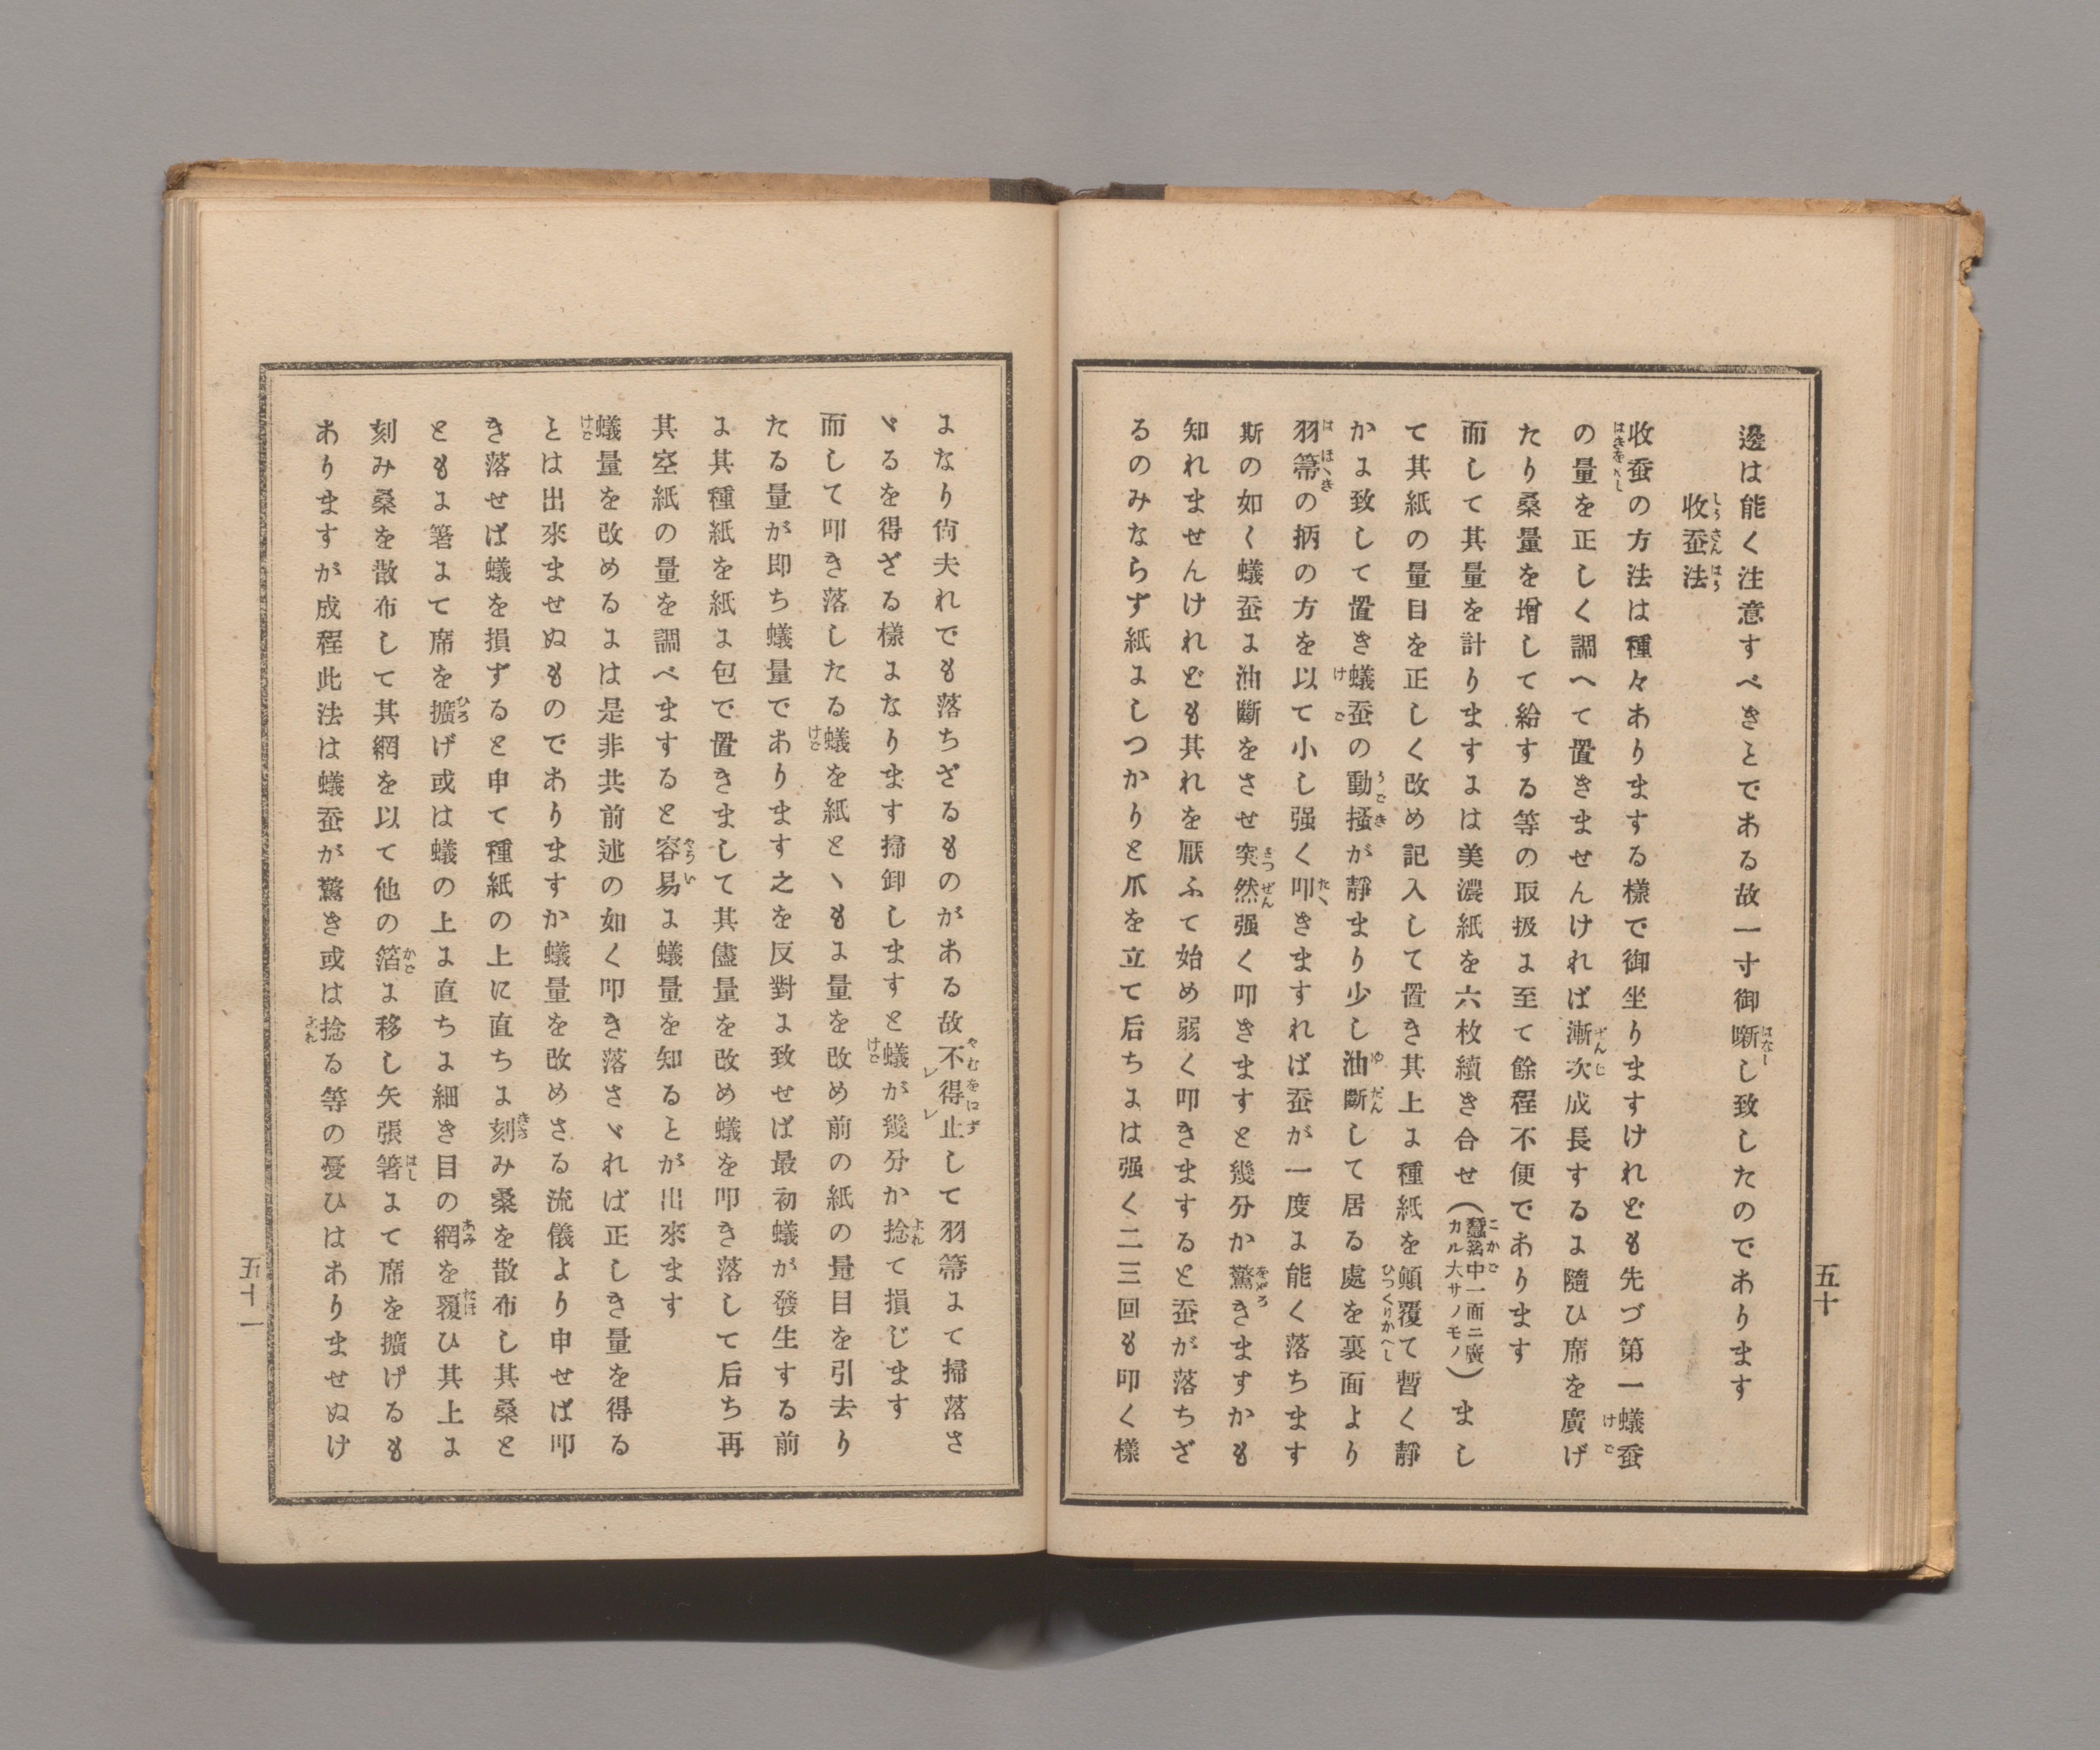 邊は能く注意すべきことである故一寸御噺し致したのであります
收蚕法
收蚕の方法は種々ありまする樣で御坐りますけれども先づ第一蟻蚕
の量を正しく調へて置きませんければ漸次成長するに隨ひ席を廣げ
たり桑量を增して給する等の取扱に至て餘程不便であります
而して其量を計りますには美濃紙を六枚續き合せ(蠶籠中一面ニ廣カル大サノモノ)まし
て其紙の量目を正しく改め記入して置き其上に種紙を顛覆て暫く靜
かに致して置き蟻蚕の動搔が靜まり少し油斷して居る處を裏面より
羽箒の柄の方を以て小し强く叩きますれば蚕が一度に能く落ちます
斯の如く蟻蚕に油斷をさせ突然强く叩きますと幾分か驚きますかも
知れませんけれども其れを厭ふて始め弱く叩きますると蚕が落ちざ
るのみならず紙にしつかりと爪を立て后ちには强く二三回も叩く樣
五十
になり尙夫れでも落ちざるものがある故不得止して羽箒にて掃落さ
ゞるを得ざる樣になります掃卸しますと蟻が幾分か捻て損じます
而して叩き落したる蟻を紙とゝもに量を改め前の紙の量目を引去り
たる量が即ち蟻量であります之を反對に致せば最初蟻が發生する前
に其種紙を紙に包で置きまして其儘量を改め蟻を叩き落して后ち再
其空紙の量を調べますると容易に蟻量を知ることが出來ます
蟻量を改めるには是非共前述の如く叩き落さゞれば正しき量を得る
ことは出來ませぬものでありますか蟻量を改めさる流儀より申せば叩
き落せば蟻を損ずると申て種紙の上に直ちに刻み桑を散布し其桑と
ともに箸にて席を擴げ或は蟻の上に直ちに細き目の網を覆ひ其上に
刻み桑を散布して其網を以て他の箔に移し矢張箸にて席を擴げるも
ありますが成程此法は蟻蚕が驚き或は捻る等の憂ひはありませぬけ
五十一